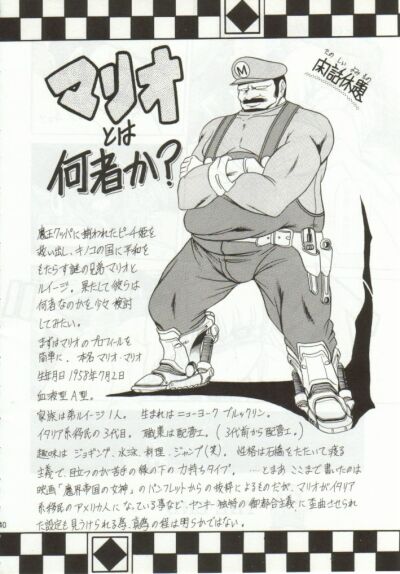 マリオ
とは
何者か?
M
閑話休題
魔王クッパに捕われたピーチ姫を
救い出し、キノコの国に平和を
もたらす謎の兄弟マリオと
ルイージ。果たして彼らは
何者なのかを今々検討
してみたい。
まずはマリオのプロフィールを
簡単に、本名 マリオ・マリオ
生年月日 1958年7月2日
血液型 A型。
家族は弟ルイージ1人。生まれはニューヨーク ブルックリン。
イタリア系移民の3代目。職業は配管工。(3代前から配管工。)
趣味はジョギング、水泳、料理、ジャンプ(笑)。性格は石橋をたたいて渡る
主義で、目立つのが苦手の縁の下の力持ちタイプ。…とまあ ここまで書いたのは
映画「魔界帝国の女神」のパンフレットからの抜粋によるものだが、マリオがイタリア
系移民のアメリカ人に なっている事など、ヤンキー独特の御都合主義に歪曲させられ
た設定も見うけられる為、真偽の程は明らかではない。
40